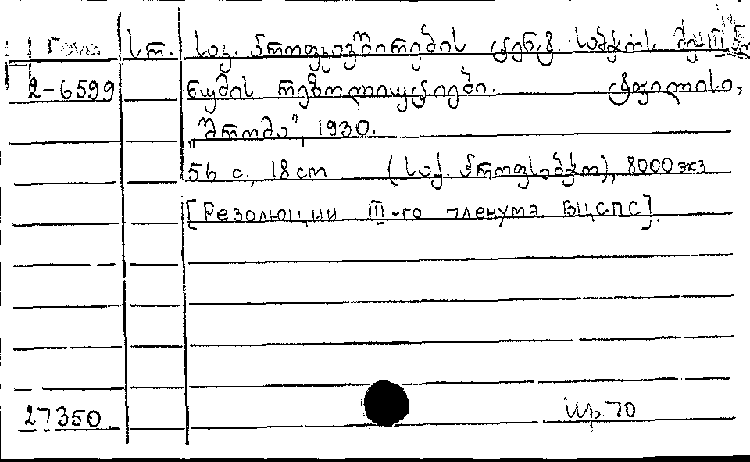 ს.რ. საკ. პროფკავშირების ცენტ. საბჭოს მე III პლე
2-6599 ნუმის რეზოლიუციები. ტფილისი,
„შრომა", 1930.
56 с., 18 cm (საქ. პროფსაბჭო), 8000 экз
[Резолюции III-го пленума ВЦСПС].
27350